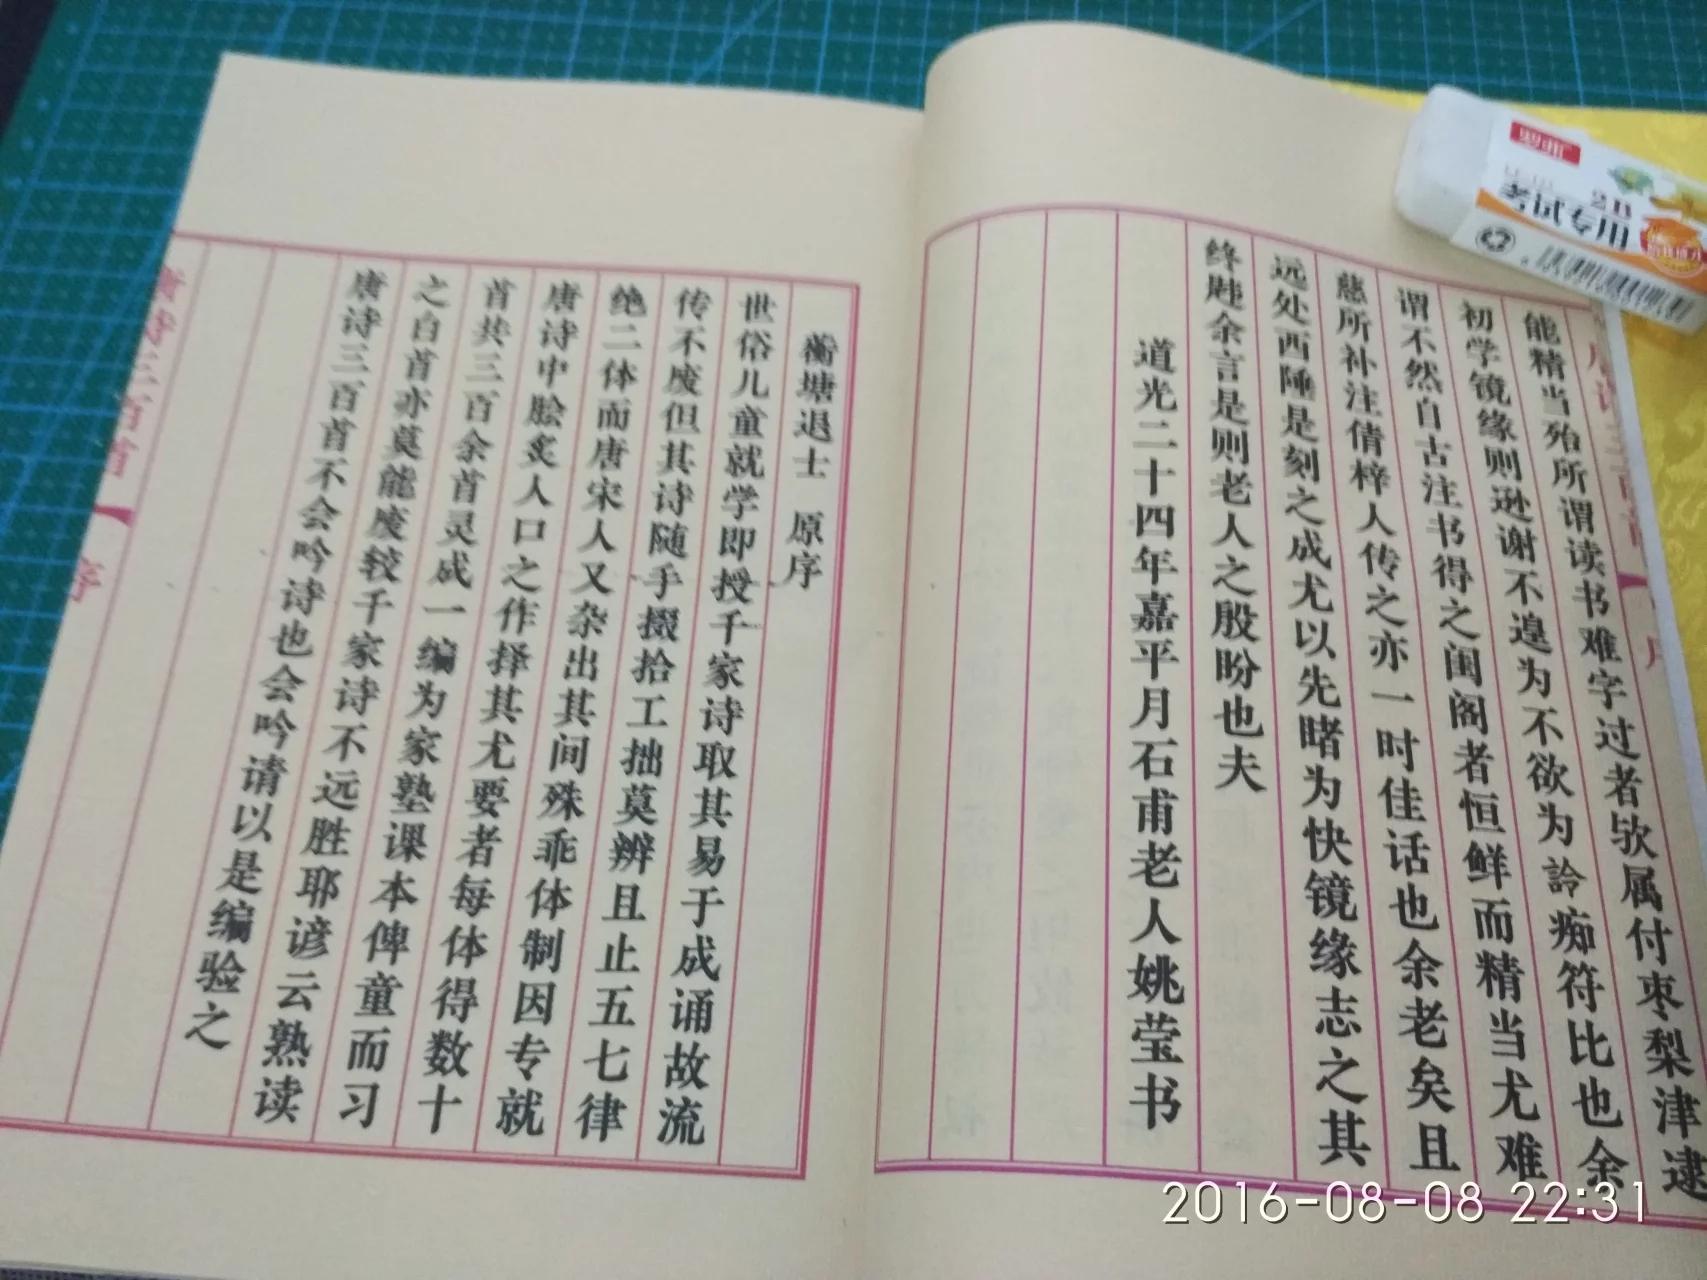 能精当殆所谓读书难字过者欤属付枣梨津逮
初学镜缘则逊谢不遑为不欲为詅痴符比也余
谓不然自古注书得之闺阁者恒鲜而精当尤难
慈所补注倩梓人传之亦一时佳话也余老矣且
远处西陲是刻之成尤以先睹为快镜缘志之其
终韪余言是则老人之殷盼也夫
道光二十四年嘉平月石甫老人姚莹书
蘅塘退士 原序
世俗儿童就学即授千家诗取其易于成诵故流
传不废但其诗随手掇拾工拙莫辨且止五七律
绝二体而唐宋人又杂出其间殊乖体制因专就
唐诗中脍炙人口之作择其尤要者每体得数十
首共三百余首灵成一编为家塾课本俾童而习
之白首亦莫能废较千家诗不远胜耶谚云熟读
唐诗三百首不会吟诗也会吟请以是编验之
唐诗三百首 序
2B
考试专用
2016-08-08 22:31